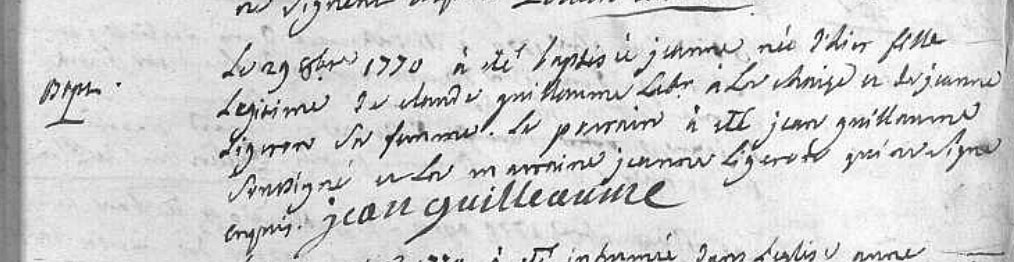 ne signent
Bapt.
Le 29 8bre 1770 à eté baptisée jeanne née d'hier fille
Legitime de claude guillaumme Labr. à La chaize et de jeanne
Ligeron sa femme. Le parrain à eté jean guillaumme
Soussigné et La marraine jeanne Ligeron qui ne signe
enquis. jean guilleaume
1770 à eté inhumée dans L'eglise anne